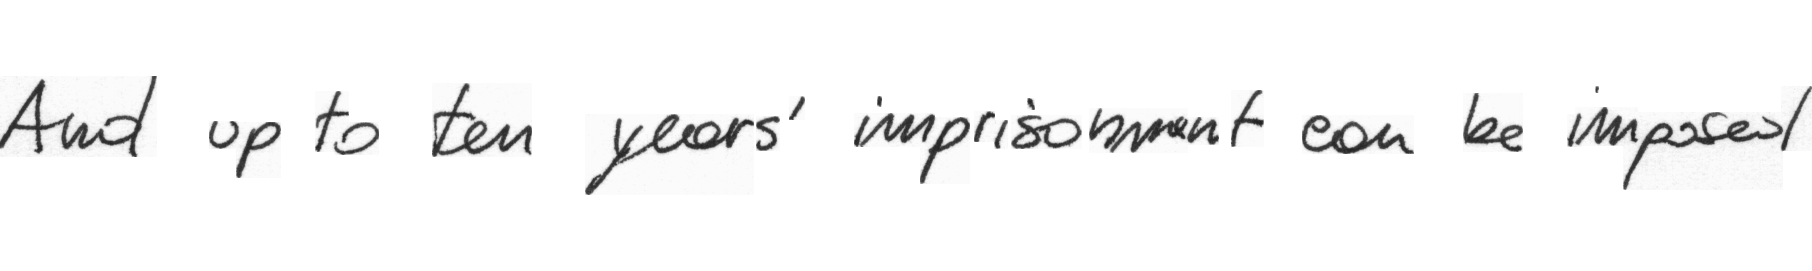 And up to ten years' imprisonment can be imposed